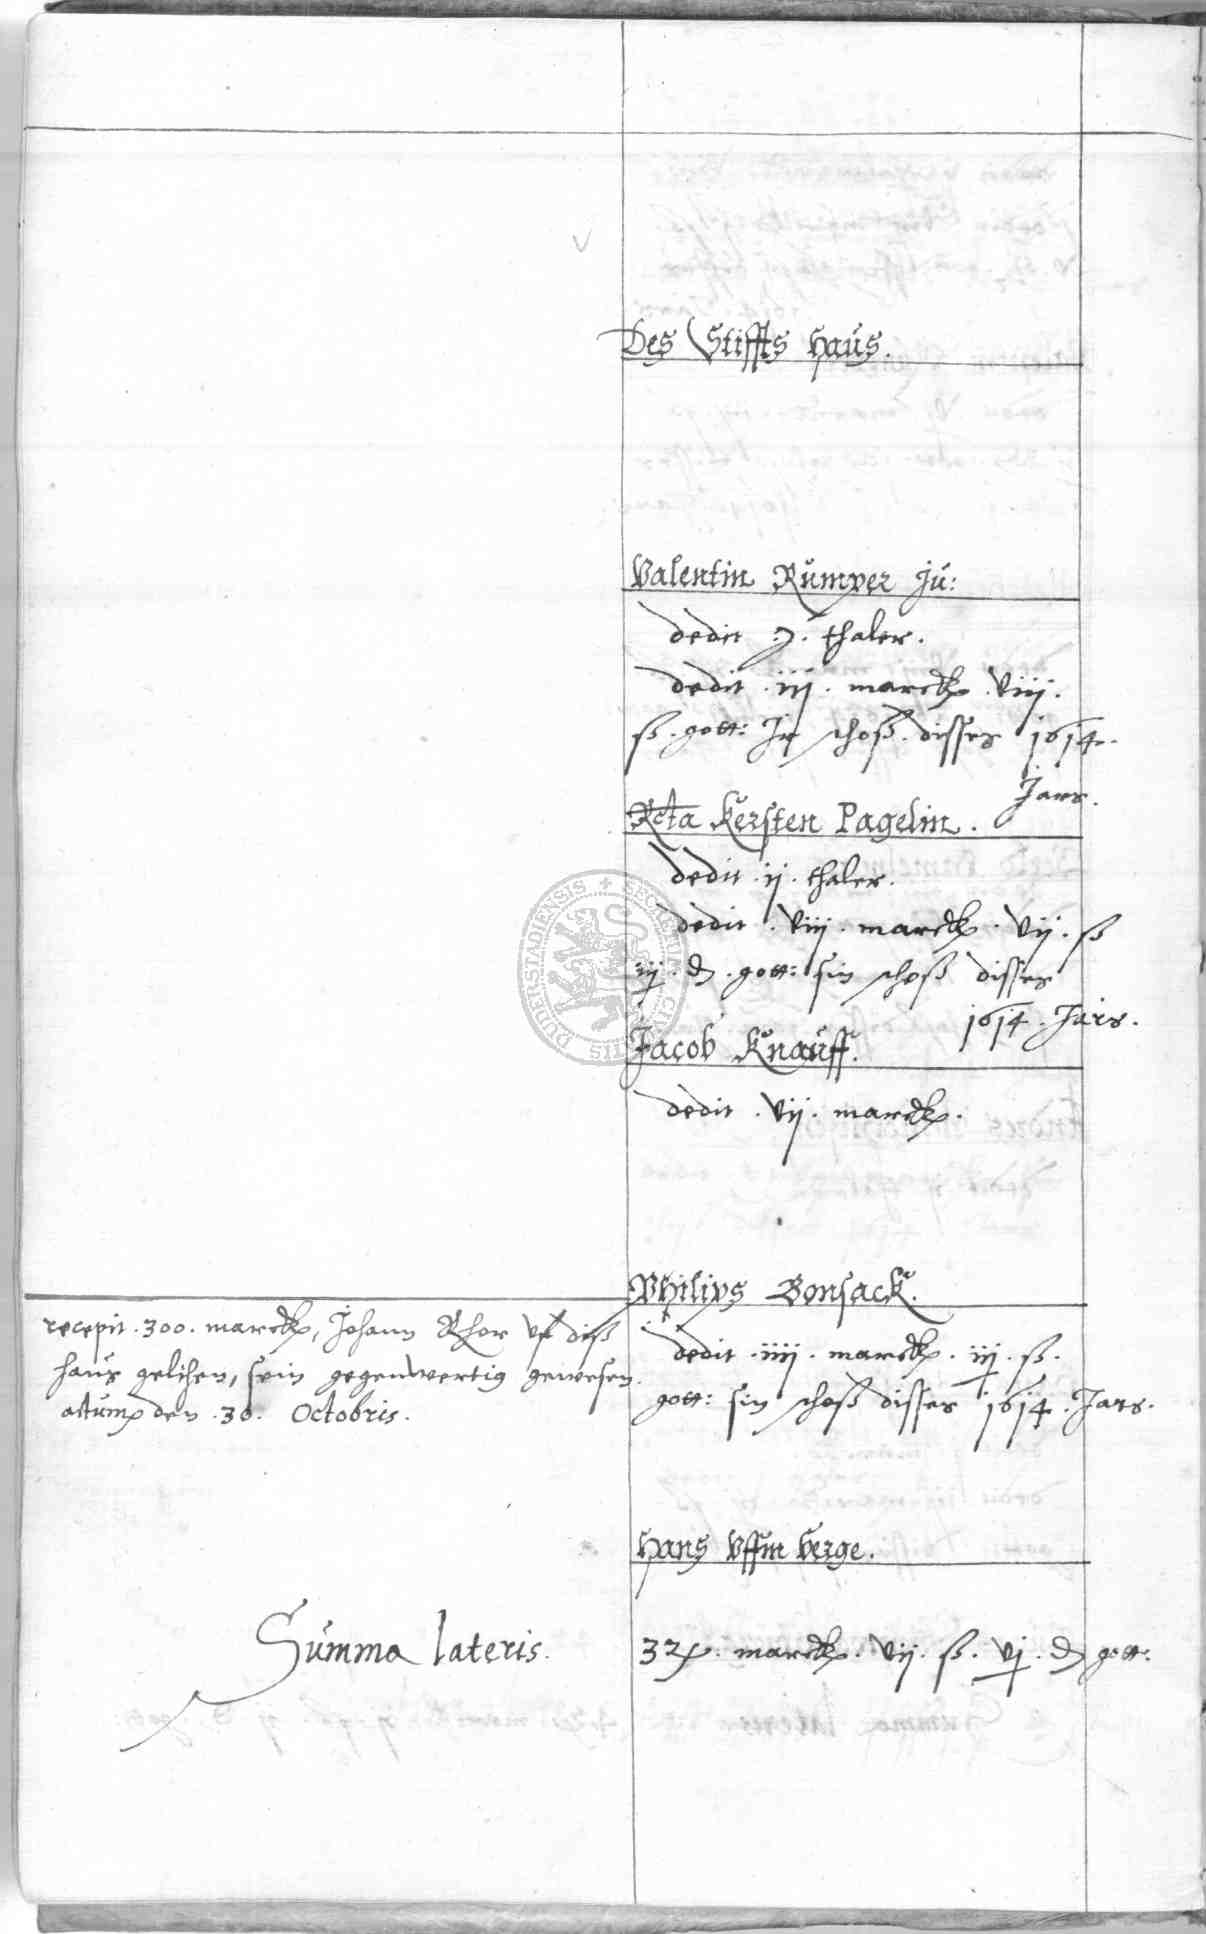 Des Stiffts Haus.
Valentin Rumper Ju:
dedit . thaler.
dedit . iij . marck . viiij .
ß . gott: Ir schoß disses 1614.
Jars.
Rcta Kersten Pagelin.
dedit . ij . thaler.
dedit . viij . marck . vij . ß
iij . d . gott: sin schoß disses
1614 . Jars.
Jacob Knauff.
dedit . vij . marck.
Philips Bonsack.
recepit . 300 . marck, Johann Rhor vf diß
haus gelihen, sein gegenwertig gewesen.
actum den . 30 . Octobris.
dedit . iiij . marck . iij . ß .
gott: sin schoß disses 1614 . Jars.
Hans Vffm Berge.
Summa lateris.
marck . vij . ß . vj . d gott:
DUDERSTADIENSIS + SECRETUM CIVITATIS